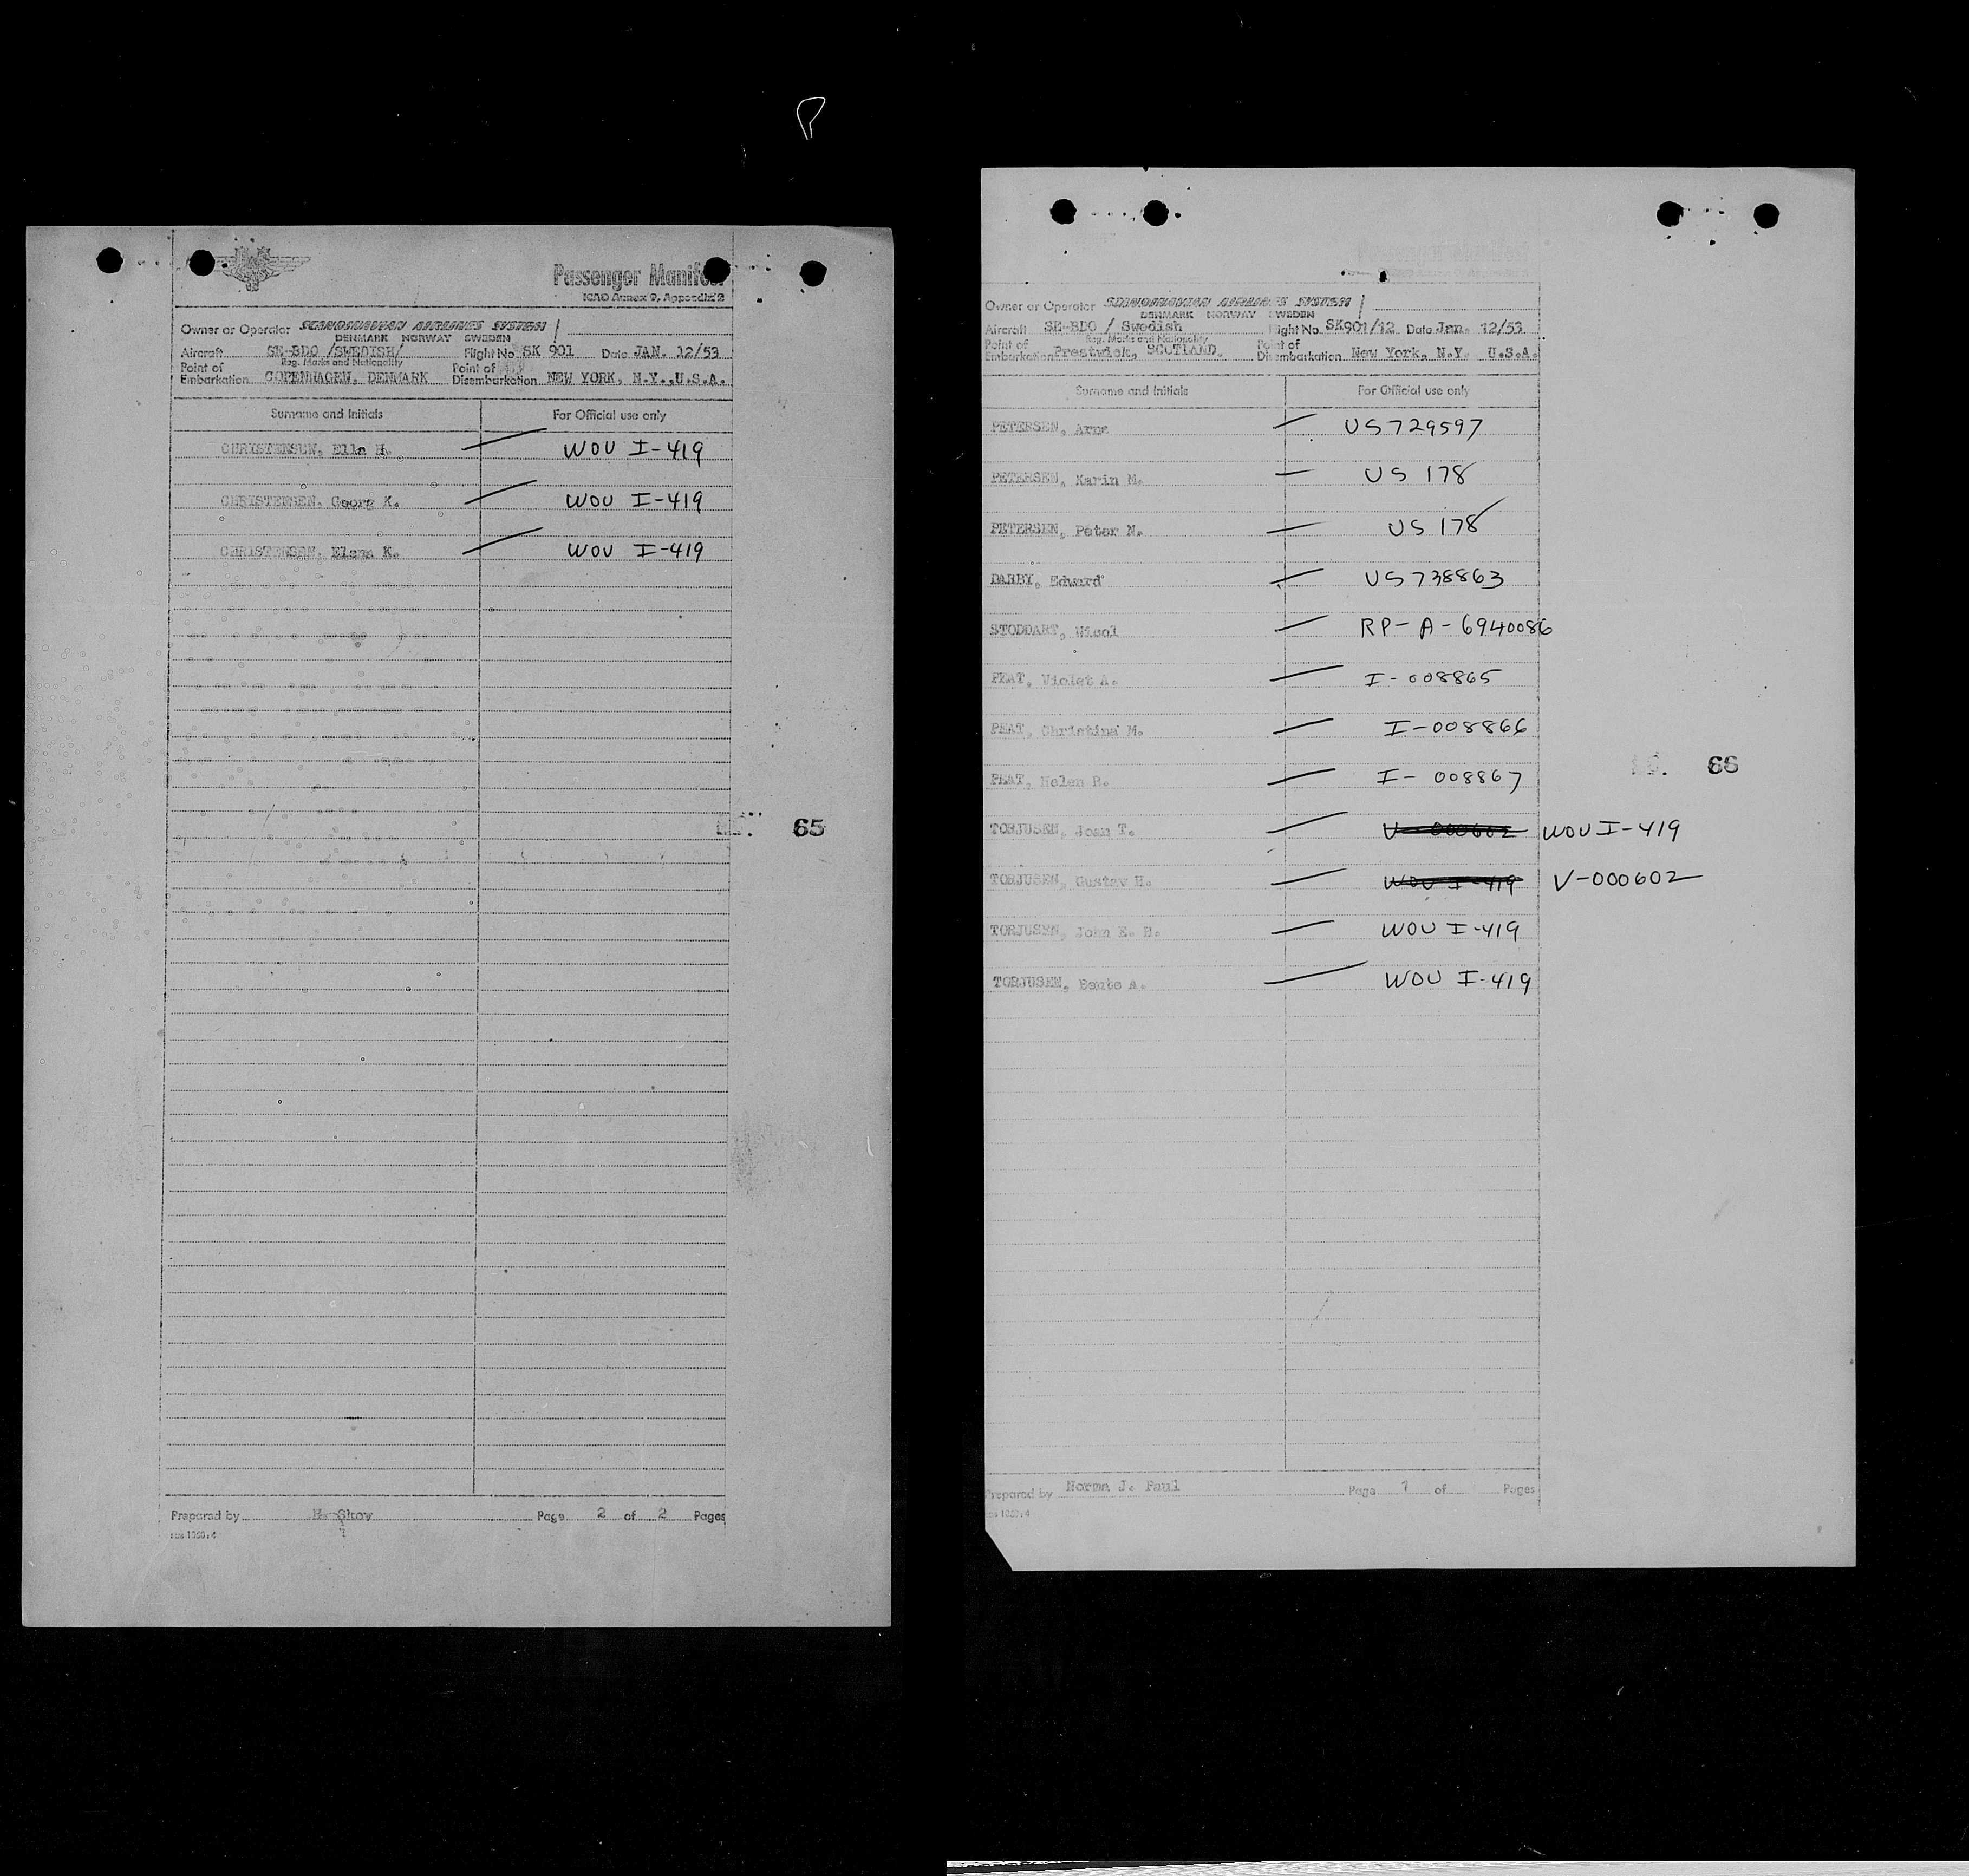 Passenger Manifest
ICAO Annex 9, Appendix 2
Owner or Operator SCANDINAVIAN AIRLINES SYSTEM
DENMARK NORWAY SWEDEN
Aircraft SE-BDO /SWEDISH/ Flight No SK 901 Date JAN. 12/53
Reg. Marks and Nationality
Point of Embarkation COPENHAGEN, DENMARK Point of Disembarkation NEW YORK, N.Y.,U.S.A.
Surname and Initials For Official use only
CHRISTENSEN, Ella H. WOU I-419
CHRISTENSEN, Georg K. WOU I-419
CHRISTENSEN, K. WOU I-419
65
Prepared by Skov Page 2 of 2 Pages
Owner or Operator SCANDINAVIAN AIRLINES SYSTEM
DENMARK NORWAY SWEDEN
Aircraft SE-BDO / Swedish Flight No. SK901/12 Date Jan. 12/53
Reg. Marks and Nationality
Point of Embarkation Prestwick, SCOTLAND. Point of Disembarkation New York, N.Y. U.S.A.
Surname and Initials For Official use only
PETERSEN, Arne US729597
PETERSEN, Karin M. US 178
PETERSEN, Peter N. US 178
DARBY, Edward US738863
STODDART, Nicol RP-A-6940086
PEAT, Violet A. I-008865
PEAT, Christina M. I-008866
PEAT, Helen R. I-008867
66
TORJUSEN, Joan T. V-000602 WOU I-419
TORJUSEN, Gustav H. WOU I-419 V-000602
TORJUSEN, John E. H. WOU I-419
TORJUSEN, Bente A. WOU I-419
Prepared by Norma J. Paul Page 1 of Pages